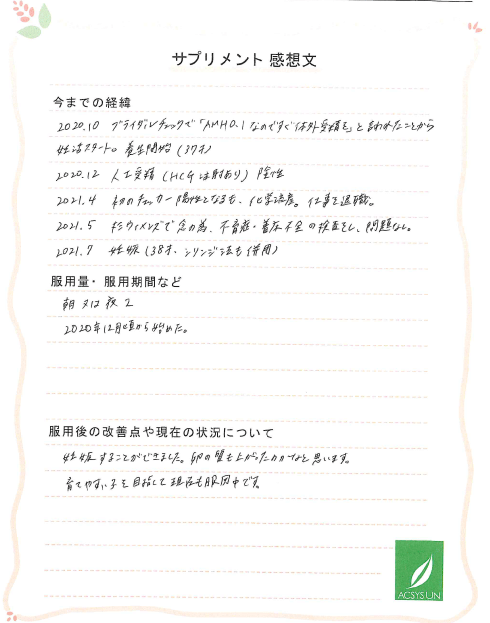 サプリメント 感想文
今までの経緯
2020.10 ブライダルチェックで「AMH0.1なのですぐ体外受精を」と言われたことから
妊活スタート。養生開始(37才)
2020.12 人工受精(HCG注射あり)陰性
2021.4 初のチェッカー陽性となるも、化学流産。仕事を退職。
2021.5 杉ウィメンズで念の為、不育症・着床不全の検査をし、問題なし。
2021.7 妊娠(38才、シリンジ法も併用)
服用量・服用期間など
朝又は夜 2
2020年12月頃から始めた。
服用後の改善点や現在の状況について
妊娠することができました。卵の質も上がったのかなと思います。
育てやすい子を目指して現在も服用中です。
ACSYSUN